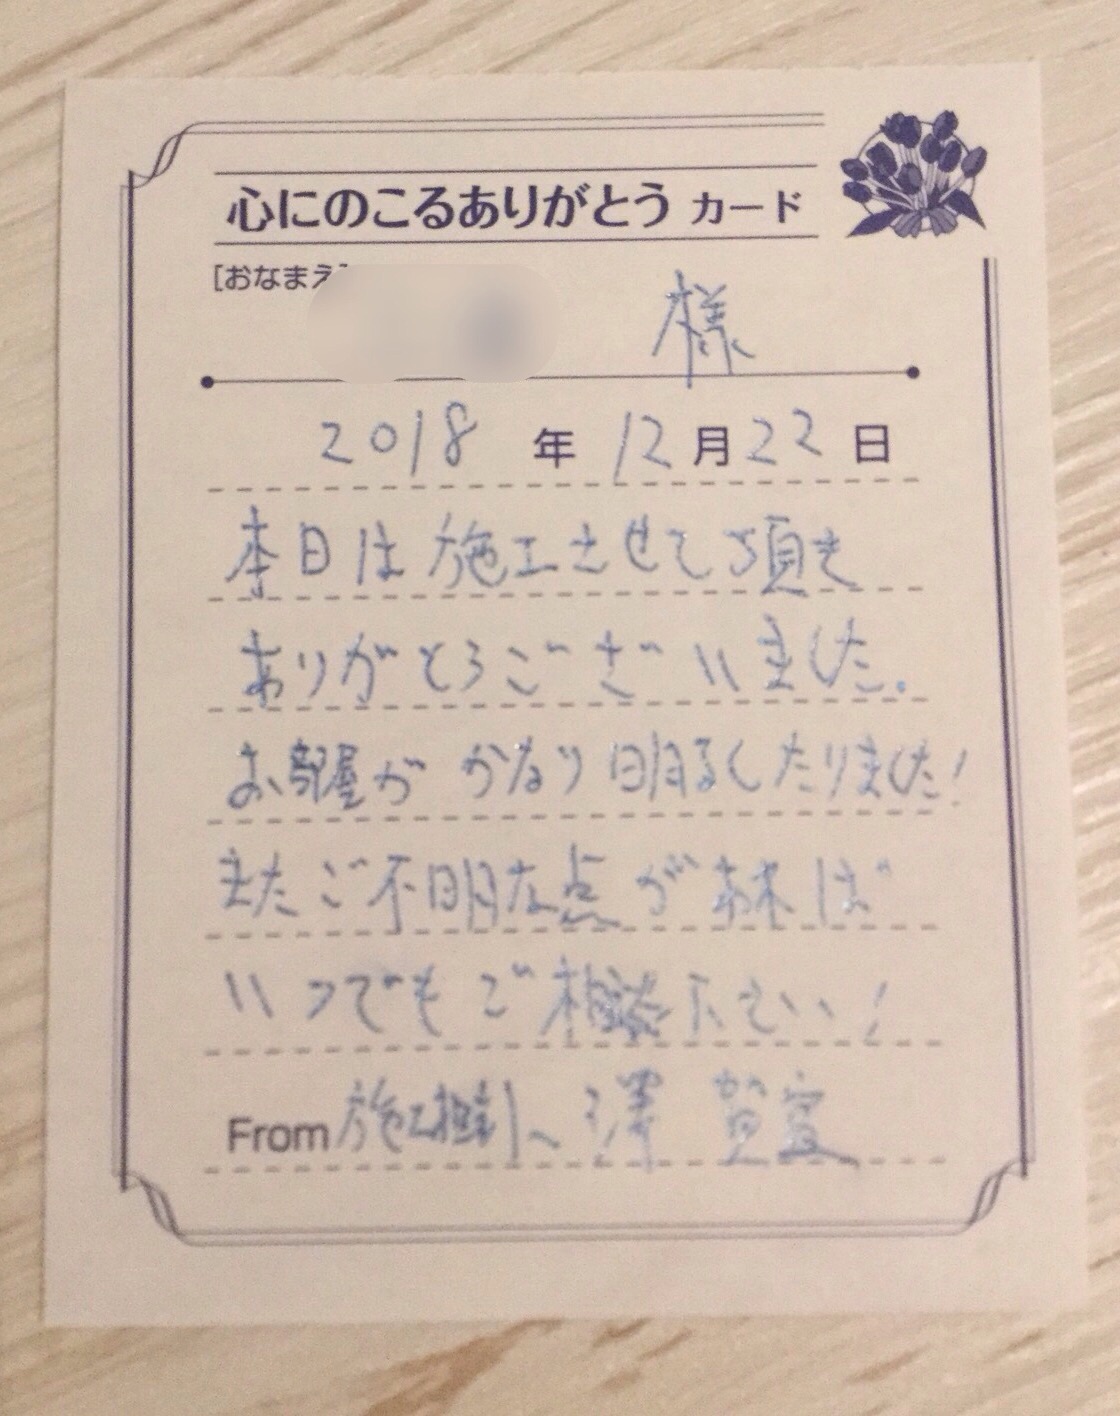 心にのこるありがとう カード
[おなまえ]
様
2018 年 12 月 22 日
本日は施工させて頂き
ありがとうございました。
お部屋が かなり明るくなりました!
またご不明な点が御座ば
いつでもご相談下さい!
From 施工担当 澤 賀宣